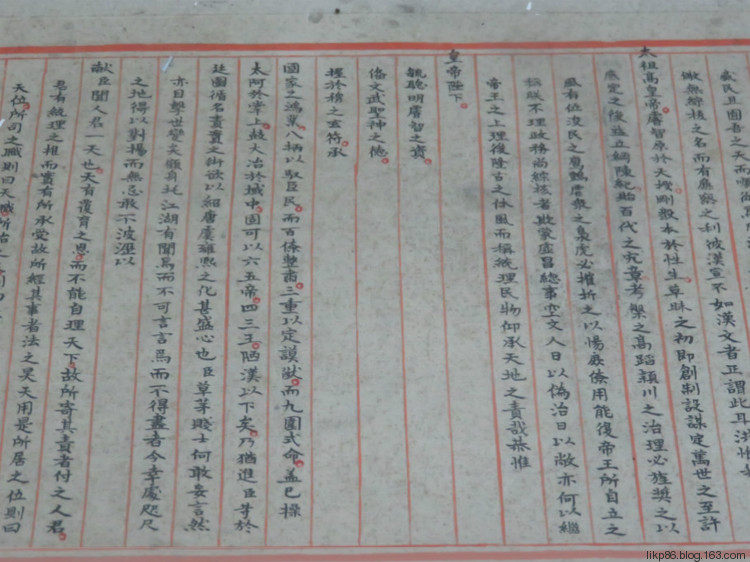 無綜核之名而有廉察之利彼漢宣不如漢文者正謂此耳洪惟
太祖高皇帝睿智原於天授剛毅本於性生草昧之初即創制設謀定萬世之至計
底定之後益立綱陳紀貽百代之憲章考槃之高蹈潁川之治理必旌獎之以
風有位浚民之鷹鸇虐衆之梟虎必摧折之以惕庶僚用能復帝王所自立之
稱朕不理政務尚綜核者欺蒙虛冒總事空文人日以偽治日以敝亦何以繼
帝王之上理後隆古之休風而稱統理民物仰承天地之責哉恭惟
皇帝陛下
毓聰明睿智之資
備文武聖神之德
握於穆之玄符承
國家之鴻業八柄以馭臣民而百僚整肅三重以定謨猷而九圍式命蓋已操
太阿於掌上鼓大冶於域中固可以六五帝四三王陋漢以下矣乃猶進臣等於
廷圖循名責實之術欲以紹唐虞雍熙之化甚盛心也臣草茅賤士何敢妄言然
亦目擊世變矣顧身託江湖有聞焉而不可言言焉而不得盡者今幸處咫尺
之地得以對揚而無忌敢不披瀝以
獻臣聞人君一天也天有覆育之恩而不能自理天下故所寄其責者付之人君
君有統理之權而實有所承受故所經其事者法之昊天用是所居之位則曰
天位所司之職則曰天職所治
likp86.blog.163.com